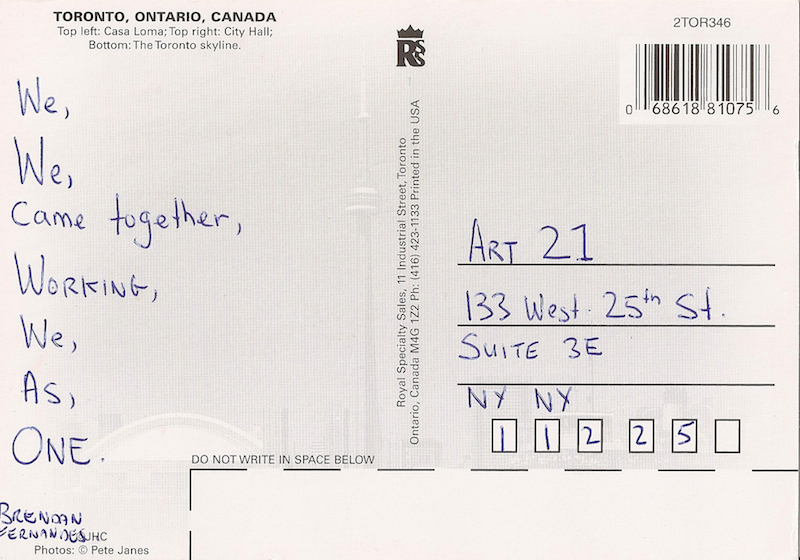 TORONTO, ONTARIO, CANADA
Top left: Casa Loma; Top right: City Hall;
Bottom: The Toronto skyline.
We,
We,
Came together,
WORKING,
We,
As,
ONE.
BRENDAN
FERNANDES
JHC
Photos: © Pete Janes
DO NOT WRITE IN SPACE BELOW
Royal Specialty Sales, 11 Industrial Street, Toronto
Ontario, Canada M4G 1Z2 Ph: (416) 423-1133 Printed in the USA
RSS
2TOR346
0 68618 81075 6
ART 21
133 West. 25th St.
SUITE 3E
NY NY
1 1 2 2 5